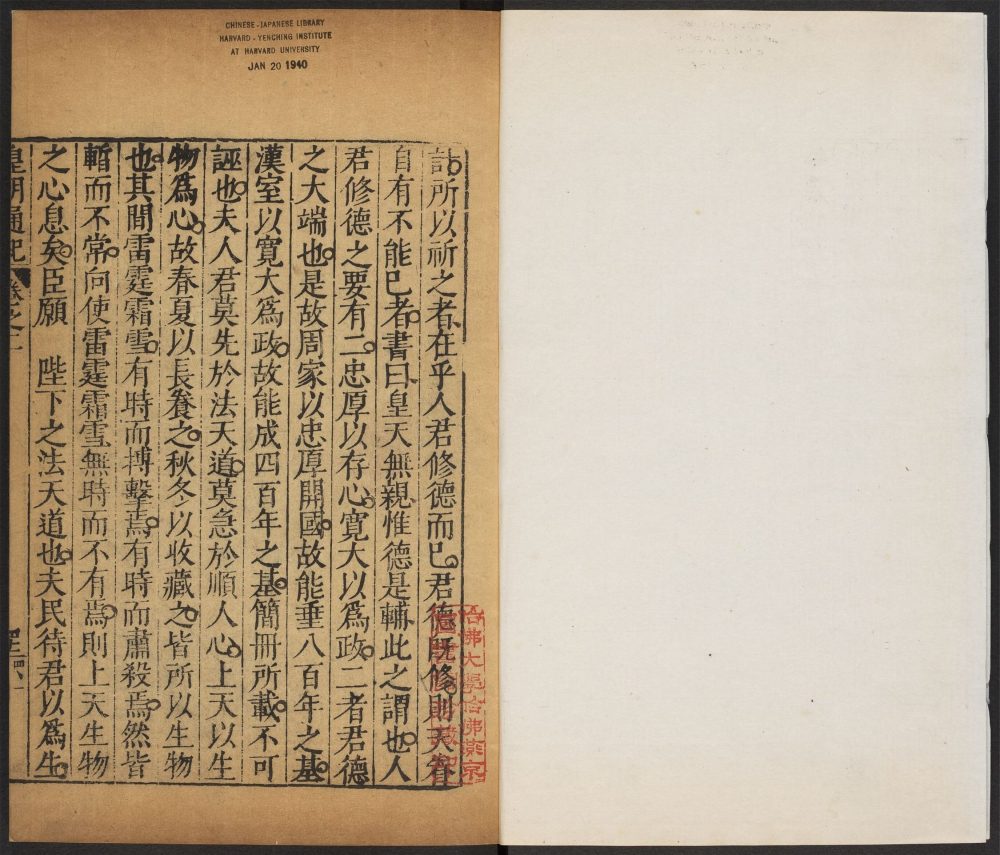 CHINESE-JAPANESE LIBRARY
HARVARD-YENCHING INSTITUTE
AT HARVARD UNIVERSITY
JAN 20 1940
所以祈之者在乎人君修德而已君德既修則天眷
自有不能已者書曰皇天無親惟德是輔此之謂也人
君修德之要有二忠厚以存心寬大以爲政二者君德
之大端也是故周家以忠厚開國故能垂八百年之基
漢室以寬大爲政故能成四百年之基簡冊所載不可
誣也夫人君莫先於法天道莫急於順人心上天以生
物爲心故春夏以長養之秋冬以收藏之皆所以生物
也其間雷霆霜雪有時而搏擊焉有時而肅殺焉然皆
暫而不常向使雷霆霜雪無時而不有焉則上天生物
之心息矣臣願　陛下之法天道也夫民待君以爲生
皇明通紀 卷之二
哈佛大學哈佛燕京